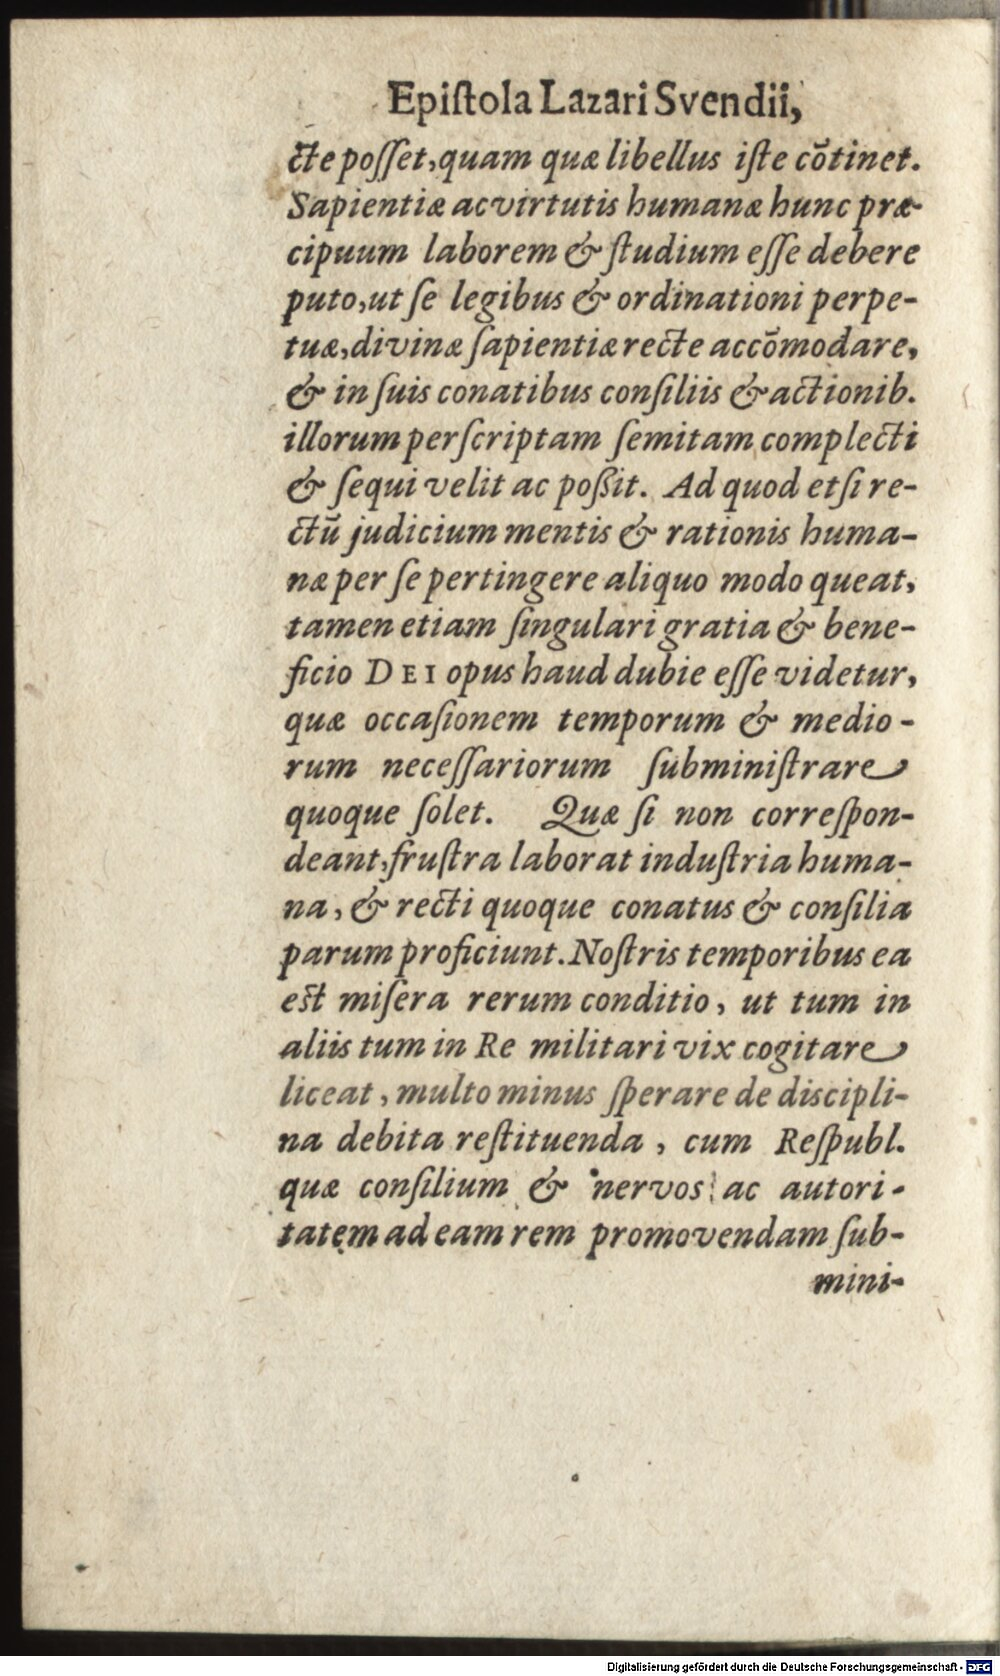 Epiſtola Lazari Svendii,
cte poſſet, quam quæ libellus iſte cõtinet.
Sapientiæ ac virtutis humanæ hunc præ-
cipuum laborem & ſtudium eſſe debere
puto, ut ſe legibus & ordinationi perpe-
tuæ, divinæ ſapientiæ recte accõmodare,
& in ſuis conatibus conſiliis & actionib.
illorum perſcriptam ſemitam complecti
& ſequi velit ac poßit. Ad quod etſi re-
ctũ judicium mentis & rationis huma-
næ per ſe pertingere aliquo modo queat,
tamen etiam ſingulari gratia & bene-
ficio DEI opus haud dubie eſſe videtur,
quæ occaſionem temporum & medio-
rum neceſſariorum ſubminiſtrare
quoque ſolet. Quæ ſi non correſpon-
deant, fruſtra laborat induſtria huma-
na, & recti quoque conatus & conſilia
parum proficiunt. Noſtris temporibus ea
est miſera rerum conditio, ut tum in
aliis tum in Re militari vix cogitare
liceat, multo minus ſperare de discipli-
na debita reſtituenda, cum Reſpubl.
quæ conſilium & nervos ac autori-
tatem ad eam rem promovendam ſub-
mini-
Digitalisierung gefördert durch die Deutsche Forschungsgemeinschaft - DFG